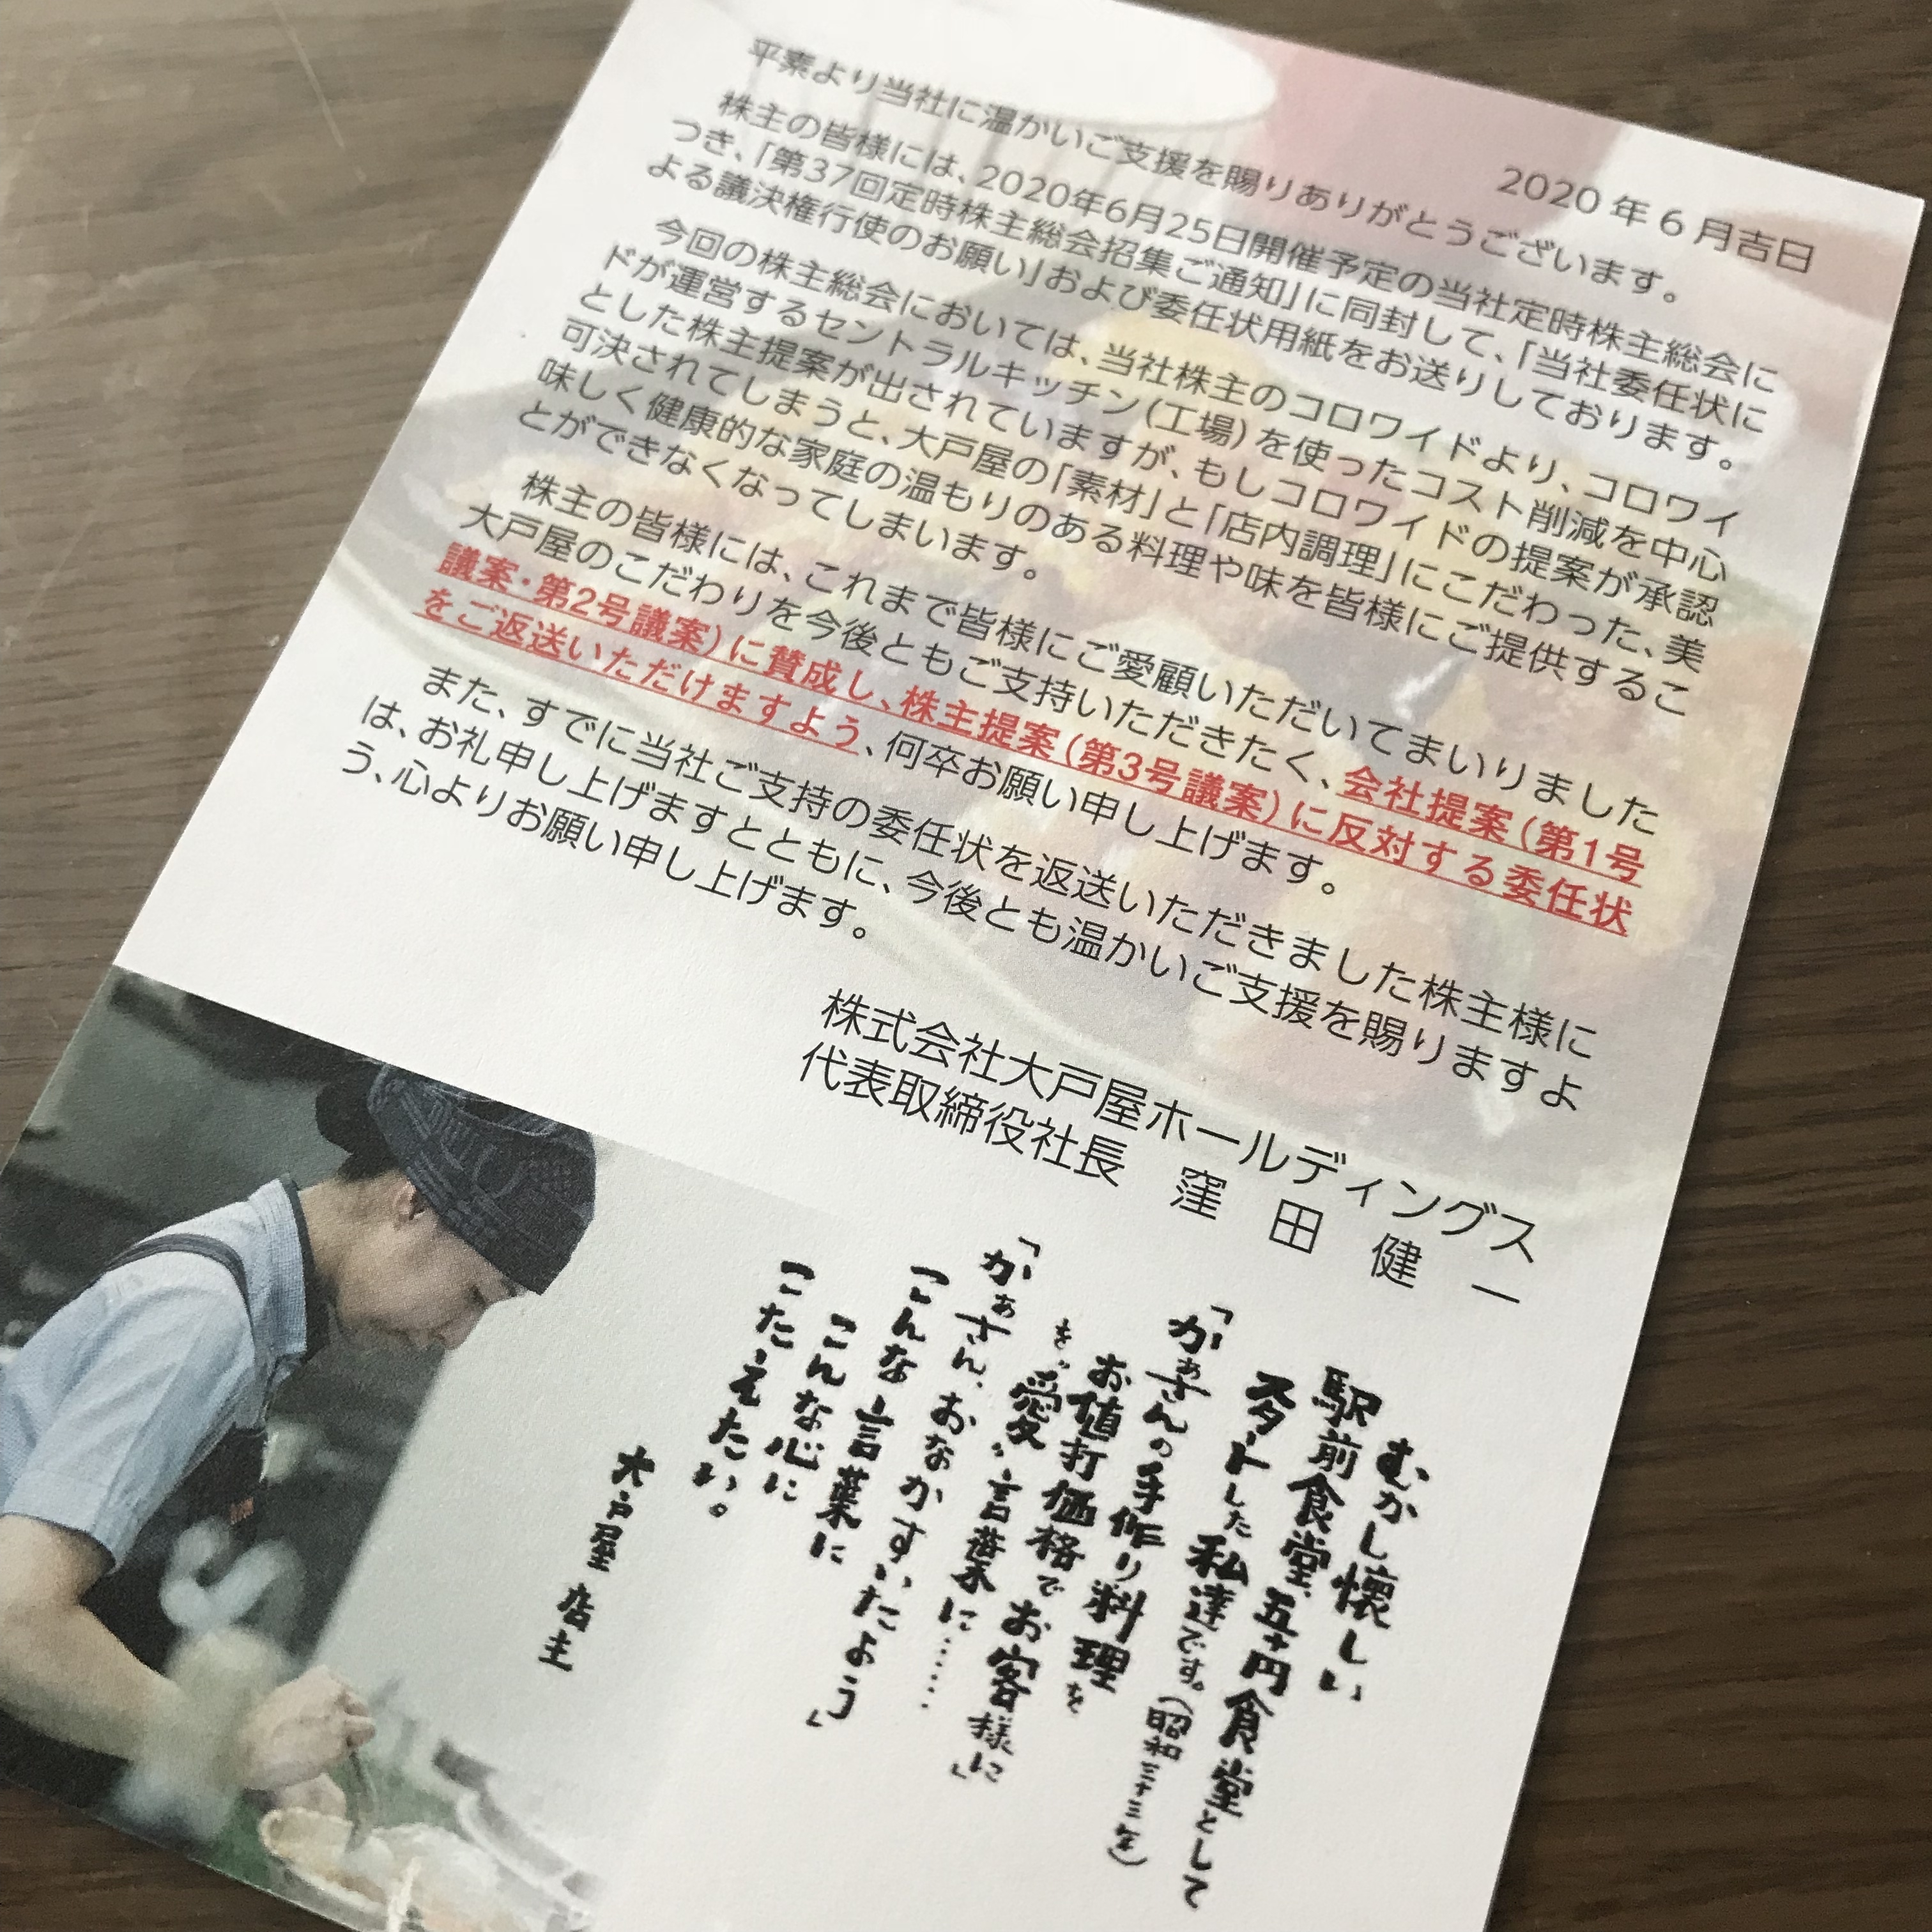 2020年6月吉日
平素より当社に温かいご支援を賜りありがとうございます。
株主の皆様には、2020年6月25日開催予定の当社定時株主総会に
つき、「第37回定時株主総会招集ご通知」に同封して、「当社委任状に
よる議決権行使のお願い」および委任状用紙をお送りしております。
今回の株主総会においては、当社株主のコロワイドより、コロワイ
ドが運営するセントラルキッチン(工場)を使ったコスト削減を中心
とした株主提案が出されていますが、もしコロワイドの提案が承認
可決されてしまうと、大戸屋の「素材」と「店内調理」にこだわった、美
味しく健康的な家庭の温もりのある料理や味を皆様にご提供するこ
とができなくなってしまいます。
株主の皆様には、これまで皆様にご愛顧いただいてまいりました
大戸屋のこだわりを今後ともご支持いただきたく、会社提案(第1号
議案・第2号議案)に賛成し、株主提案(第3号議案)に反対する委任状
をご返送いただけますよう、何卒お願い申し上げます。
また、すでに当社ご支持の委任状を返送いただきました株主様に
は、お礼申し上げますとともに、今後とも温かいご支援を賜りますよ
う、心よりお願い申し上げます。
株式会社大戸屋ホールディングス
代表取締役社長 窪田健一
むかし懐しい
駅前食堂、五十円食堂として
スタートした私達です。(昭和三十三年)
「かあさんの手作り料理を
お値打価格でお客様に」
を〝愛〟言葉に……
「かあさん、おなかすいたよう」
こんな言葉に
こんな心に
こたえたい。
大戸屋 店主